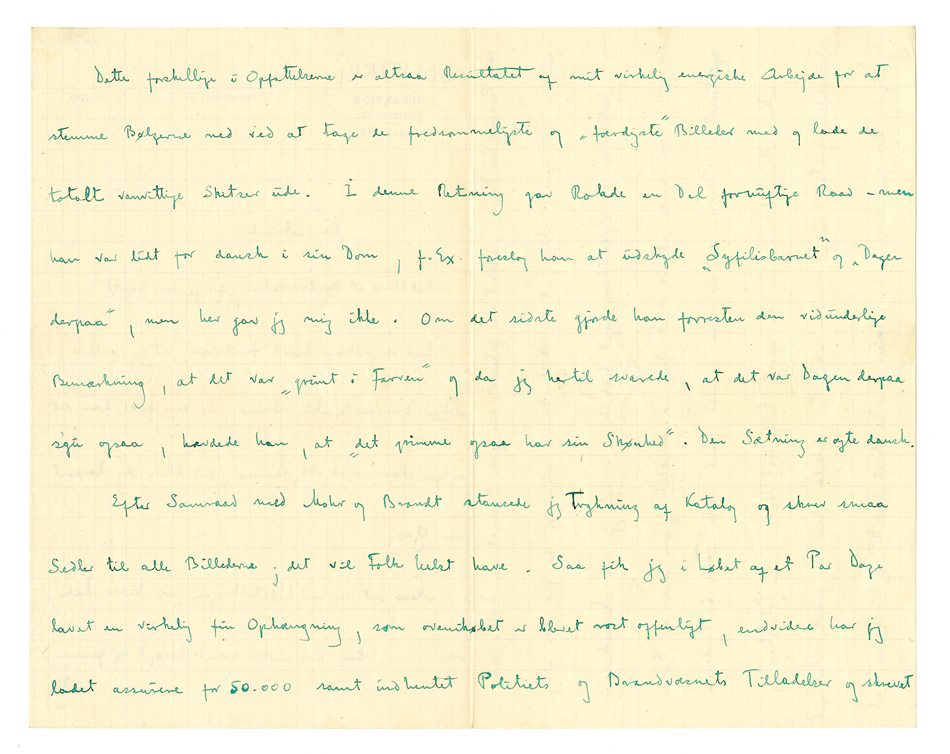 Dette forskellige i Opfattelserne er altsaa Resultatet af mit virkelig energiske Arbejde for at
stemme Bølgerne ned ved at tage de fredsommeligste og „færdigste“ Billeder med og lade de
totalt vanvittige Skitser ude. I denne Retning gav Rohde en Del fornuftige Raad – men
han var lidt for dansk i sin Dom, f. Ex. foreslog han at udskyde „Syfilisbarnet“ og „Dagen
derpaa“, men her gav jeg mig ikke. Om det sidste gjorde han forresten den vidunderlige
Bemærkning, at det var „grimt i Farven“ og da jeg hertil svarede, at det var Dagen derpaa
s'gu ogsaa, hævdede han, at „det grimme ogsaa har sin Skønhed“. Den Sætning er ægte dansk.
Efter Samraad med Mohr og Brandt stansede jeg Trykning af Katalog og skrev smaa
Sedler til alle Billederne; det vil Folk helst have. Saa fik jeg i Løbet af et Par Dage
lavet en virkelig fin Ophængning, som ovenikøbet er blevet rost offenligt, endvidere har jeg
ladet assurere for 50.000 samt indhentet Politiets og Brandvæsnets Tilladelser og skrevet